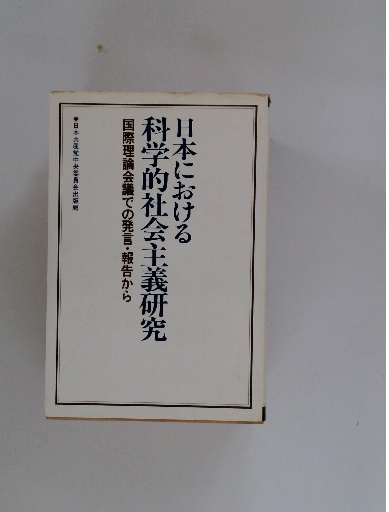 日本における
科学的社会主義研究
国際理論会議での発言・報告から
●日本共産党中央委員会出版局